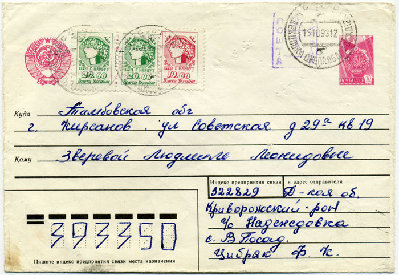 15 10 93 12
Куда Тамбовская обл
г. Кирсанов, ул Советская д 29а кв 19
Кому Зверевой Людмиле Леонидовне
Индекс предприятия связи и адрес отправителя
322829 Д-кая об.
Криворожский р-он
п/о Надеждовка
с. В Посад.
Цибряк Ф. К.
393350
Пишите индекс предприятия связи места назначения